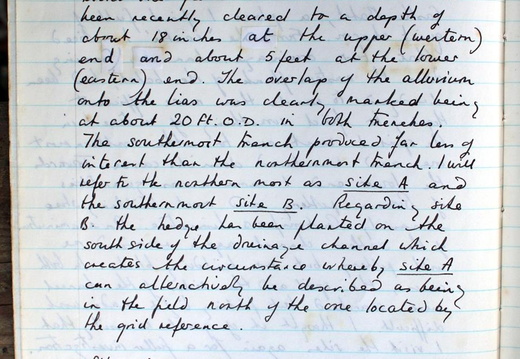 been recently cleared to a depth of
about 18 inches at the upper (western)
end and about 5 feet at the lower
(eastern) end. The overlap of the alluvium
onto the lias was clearly marked being
at about 20 ft. O.D. in both trenches.
The southernmost trench produced far less of
interest than the northernmost trench. I will
refer to the northern most as site A and
the southernmost site B. Regarding site
B. the hedge has been planted on the
south side of the drainage channel which
creates the circumstance whereby site A
can alternatively be described as being
in the field north of the one located by
the grid reference.